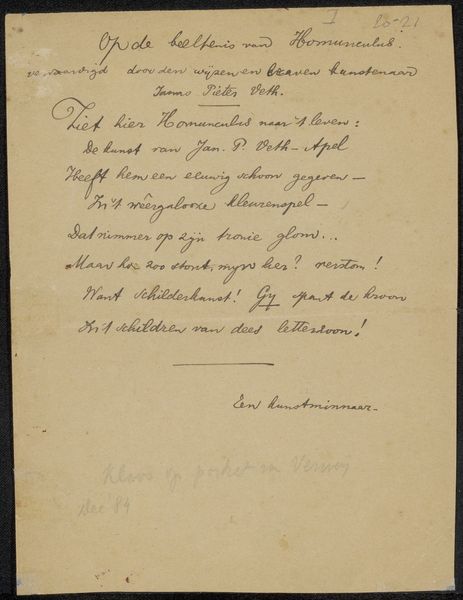 I 20-21
Op de beeltenis van Homunculus!
vervaardigd door den wijzen en braven kunstenaar
Pieter Veth.
Ziet hier Homunculus naar 't leven:
De kunst van Jan. P. Veth – Apel
Heeft hem een eeuwig schoon gegeven –
In 't wêergalooze kleurenspel –
Dat nimmer op zijn tronie glom...
Maar hoe zoo stout, mijn lier? verstom!
Want schilderkunst! Gy spant de kroon
In 't schildren van dees letterzoon!
Een kunstminnaar.
Kloos op portret van Verwey
Dec '84